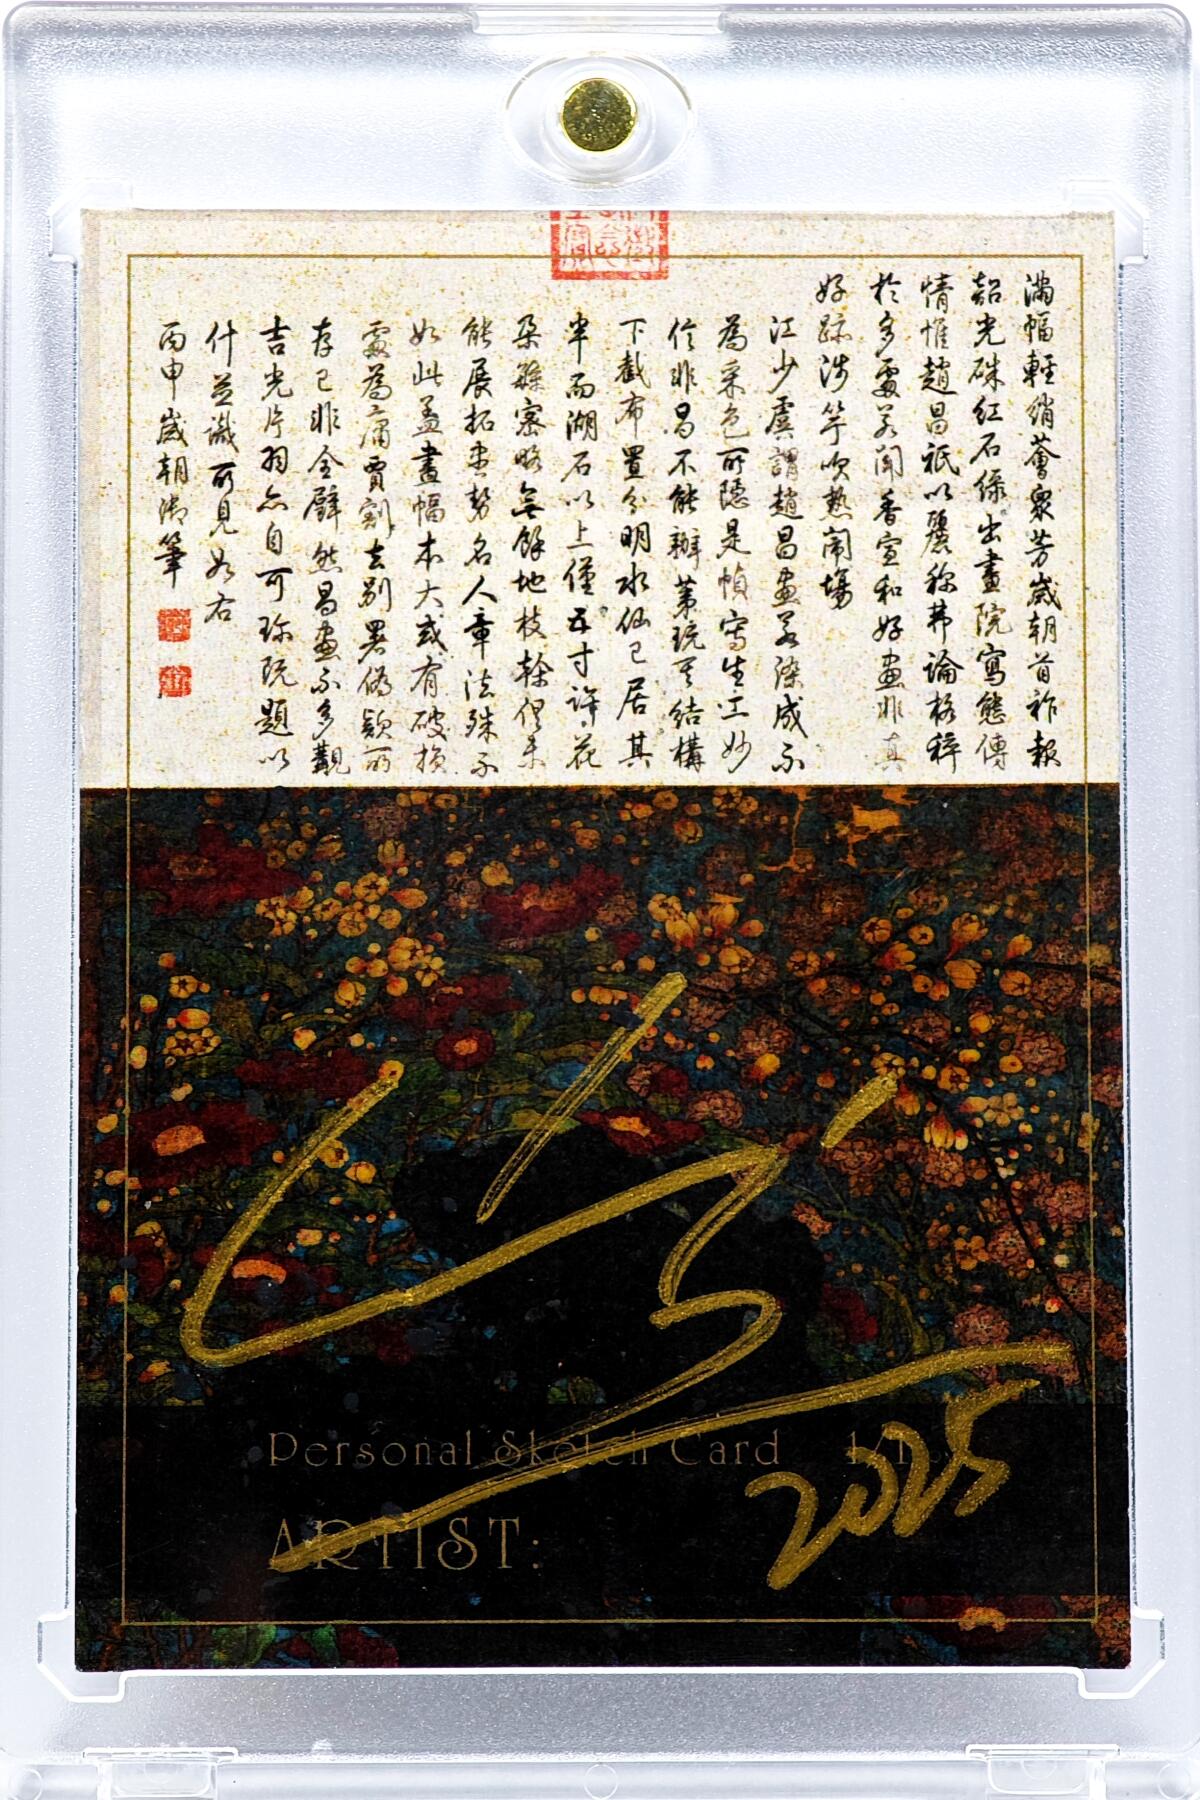 滿幅輕綃薈眾芳歲朝首祚報
韶光硃紅石綠出畫院寫態傳
情惟趙昌祇以麗稱弗論格
於多處若聞香宣和好畫非真
好跡涉竽吹熱鬧場
江少虞謂趙昌畫若染成不
為采色所隱是幀寫生工妙
信非昌不能辦第玩其結構
下截布置分明水仙已居其
半而湖石以上僅五寸許花
朶繁密略無餘地枝幹俱未
能展拓盡勢名人章法殊不
如此蓋畫幅本大或有破損
處為庸賈割去別署偽款所
存已非全璧然昌畫不多觀
吉光片羽亦自可珍玩題以
什並識所見如右
丙申歲朝御筆
Personal Sketch Card 1/1
2025
ARTIST: